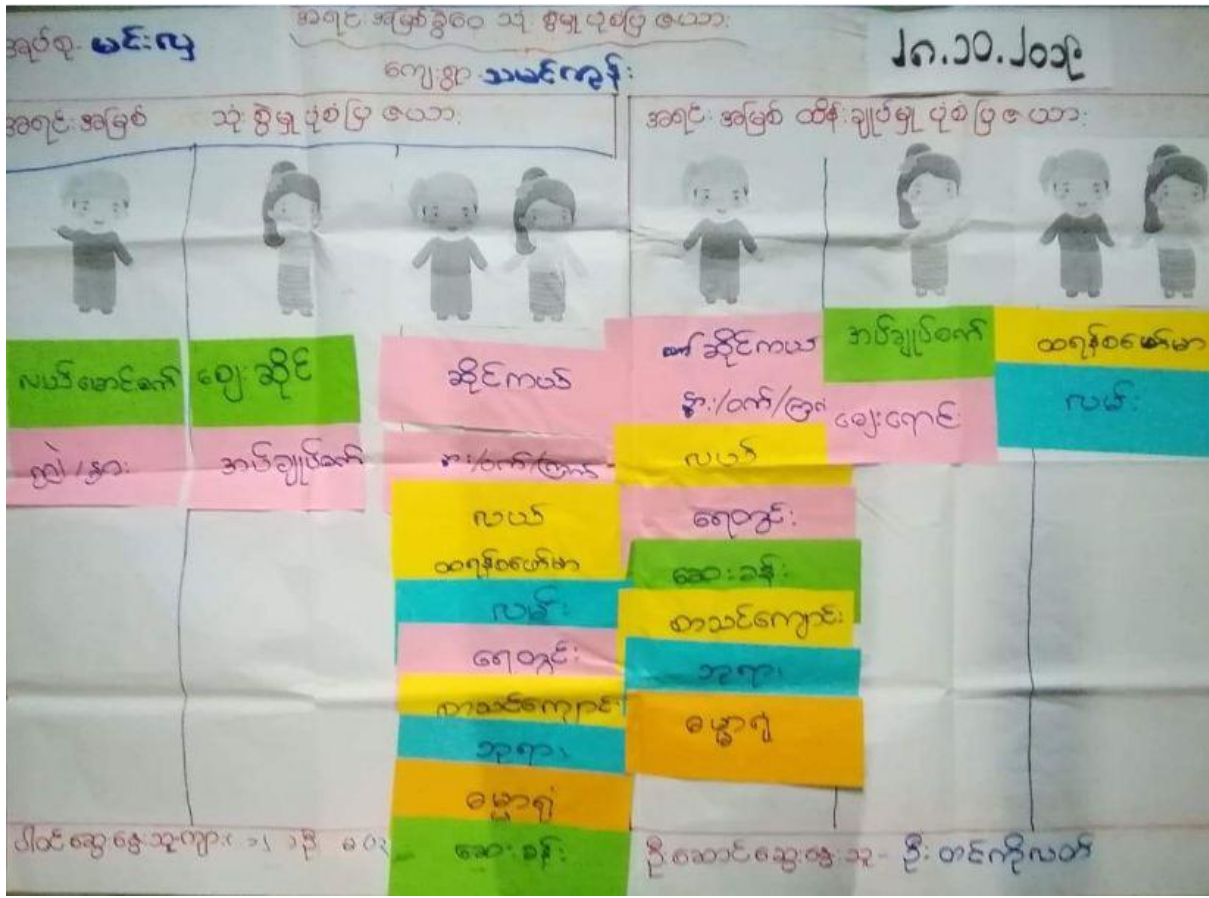 အရင်းအမြစ်ခွဲဝေ သုံးစွဲမှုပုံစံပြဇယား
အုပ်စု- မင်းလှ
ကျေးရွာ- သမင်ကုန်း
၂၈.၁၀.၂၀၁၉
အရင်းအမြစ် သုံးစွဲမှုပုံစံပြဇယား
အရင်းအမြစ် ထိန်းချုပ်မှုပုံစံပြဇယား
လယ်မောင်စက်
ကျွဲ/နွား
ဈေးဆိုင်
အပ်ချုပ်စက်
ဆိုင်ကယ်
နွား/ဝက်/ကြက်
လယ်
ထရန်စဖော်မာ
လမ်း
ရေတွင်း
စာသင်ကျောင်း
ဘုရား
ဓမ္မာရုံ
ဆေးခန်း
ဆိုင်ကယ်
နွား/ဝက်/ကြက်
လယ်
ရေတွင်း
ဆေးခန်း
စာသင်ကျောင်း
ဘုရား
ဓမ္မာရုံ
အပ်ချုပ်စက်
ဈေးရောင်း
ထရန်စဖော်မာ
လမ်း
ပါဝင်ဆွေးနွေးသူ ကျား
ဦးဆောင်ဆွေးနွေးသူ- ဦးတင်ကိုလတ်